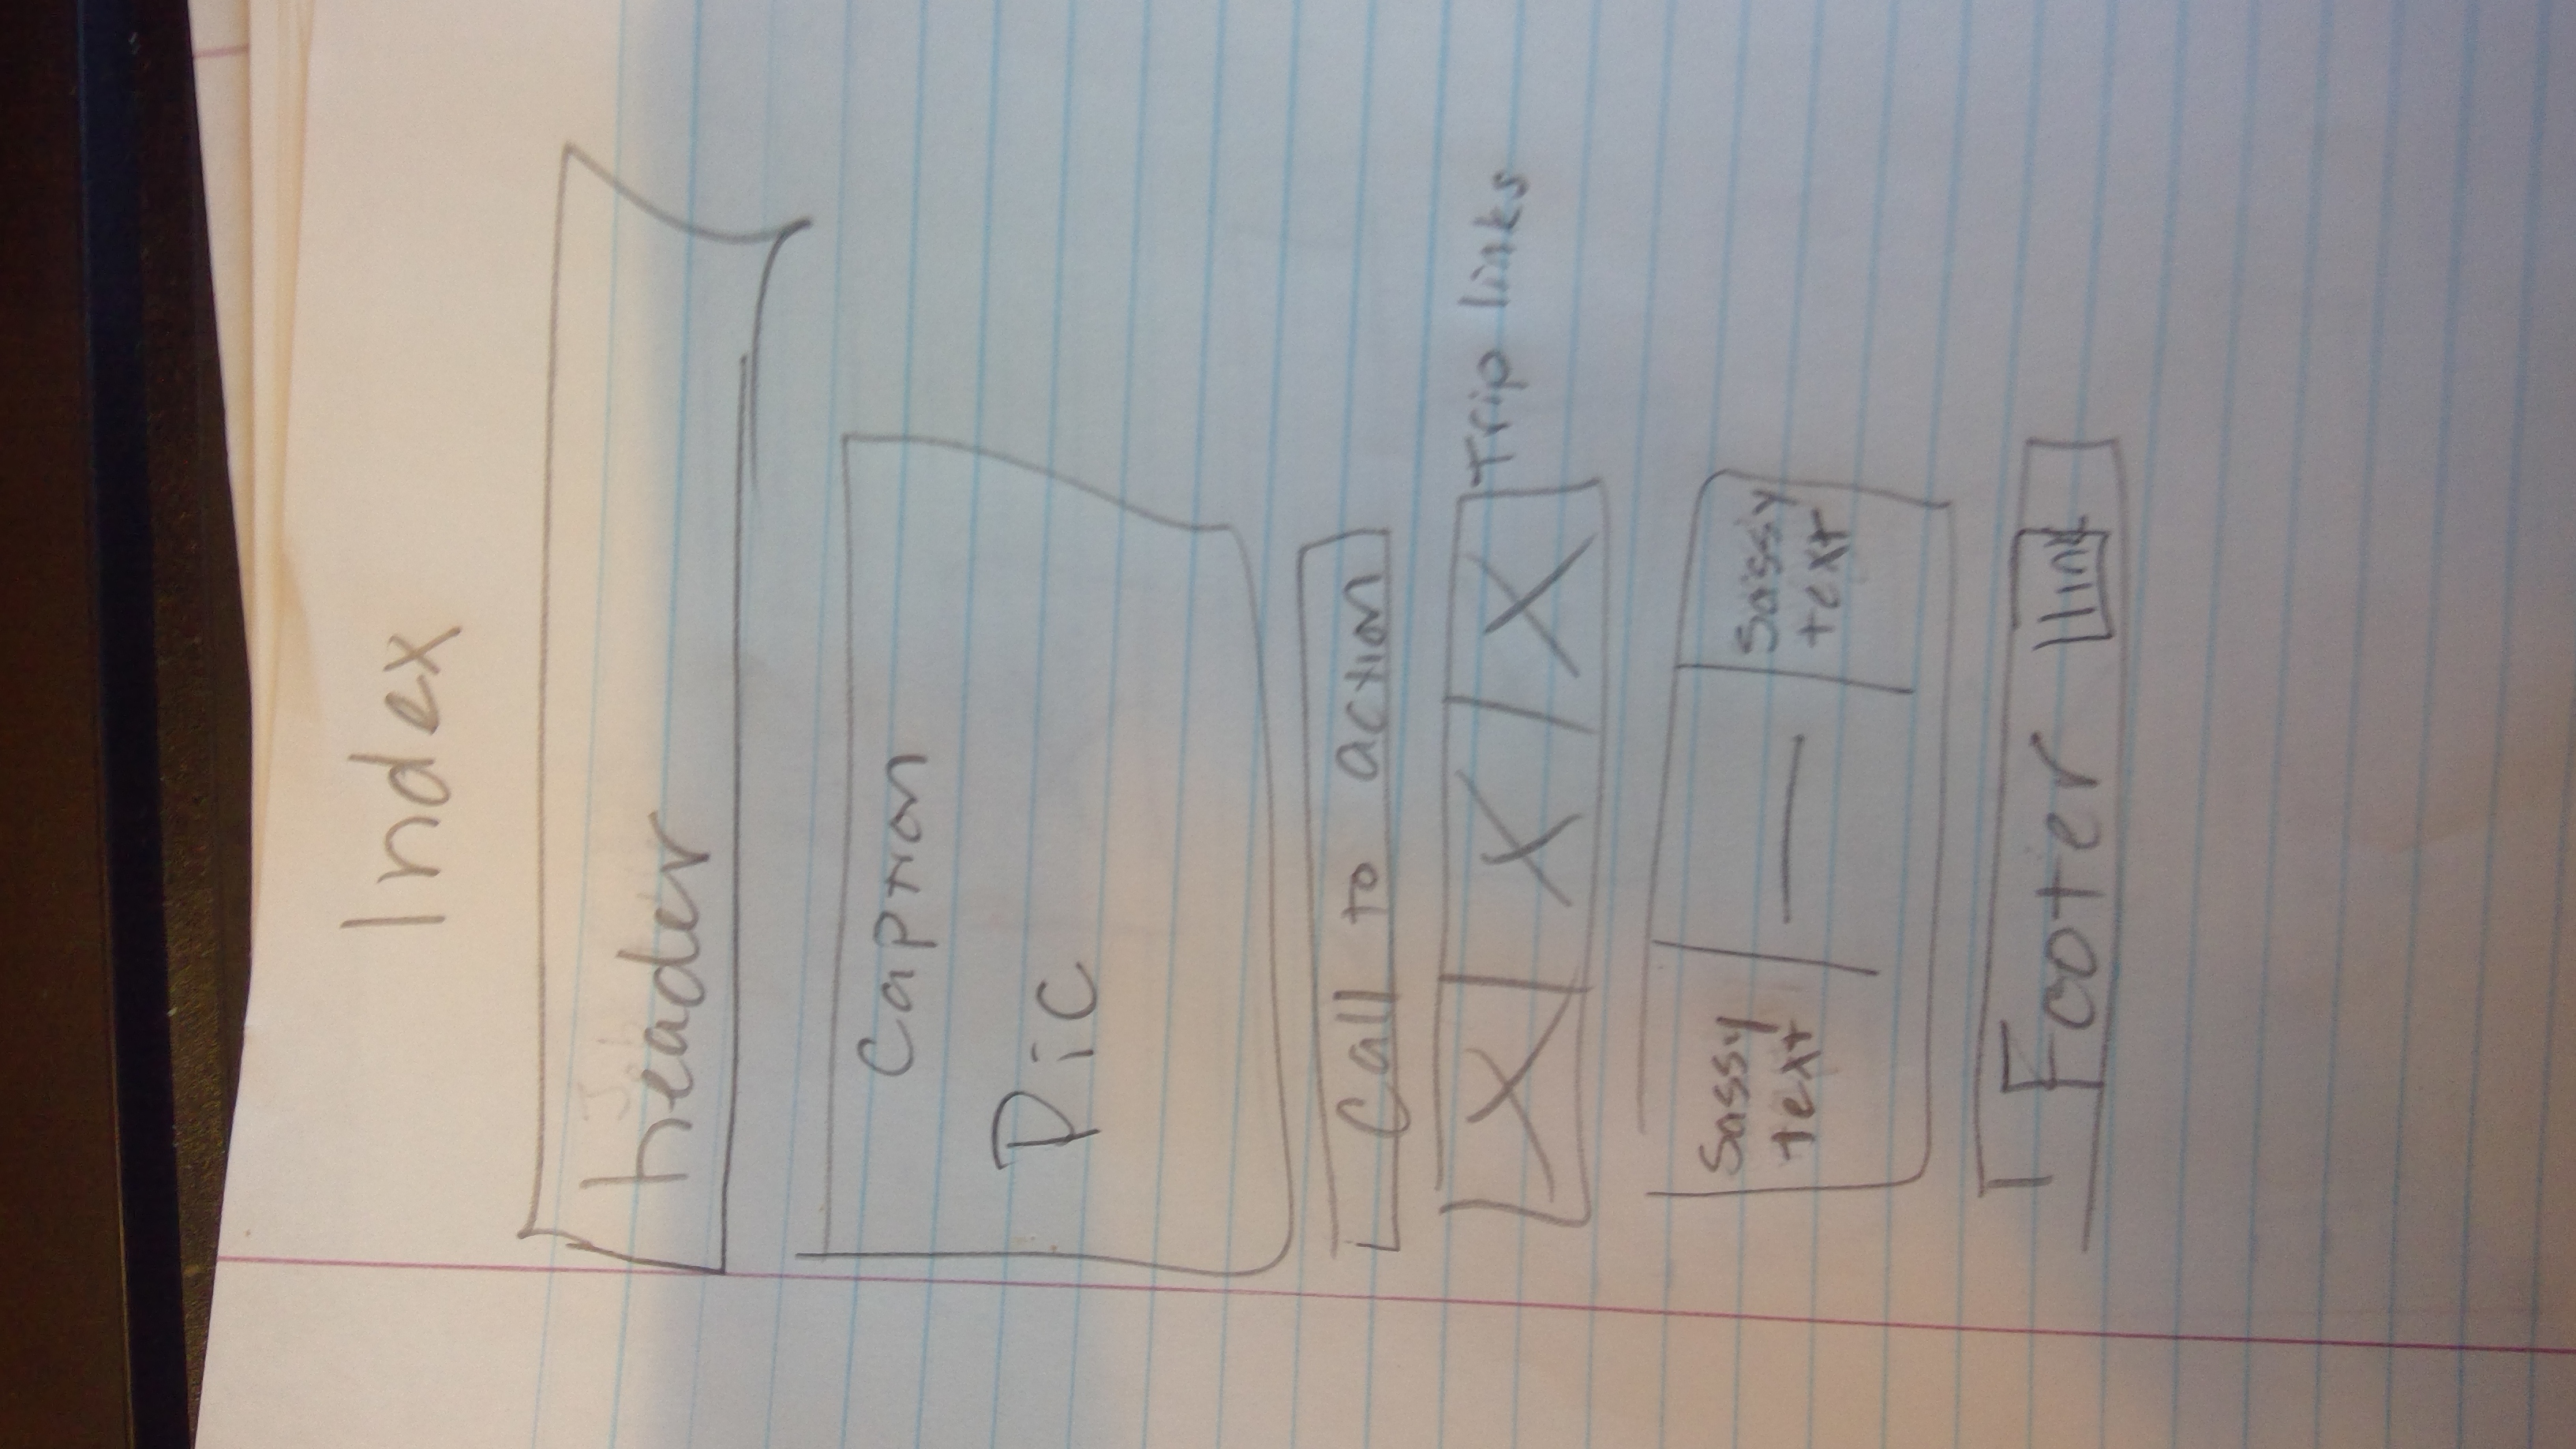 Index
header
Caption
Pic
Call to action
X X X Trip links
Sassy text
Sassy text
Footer link